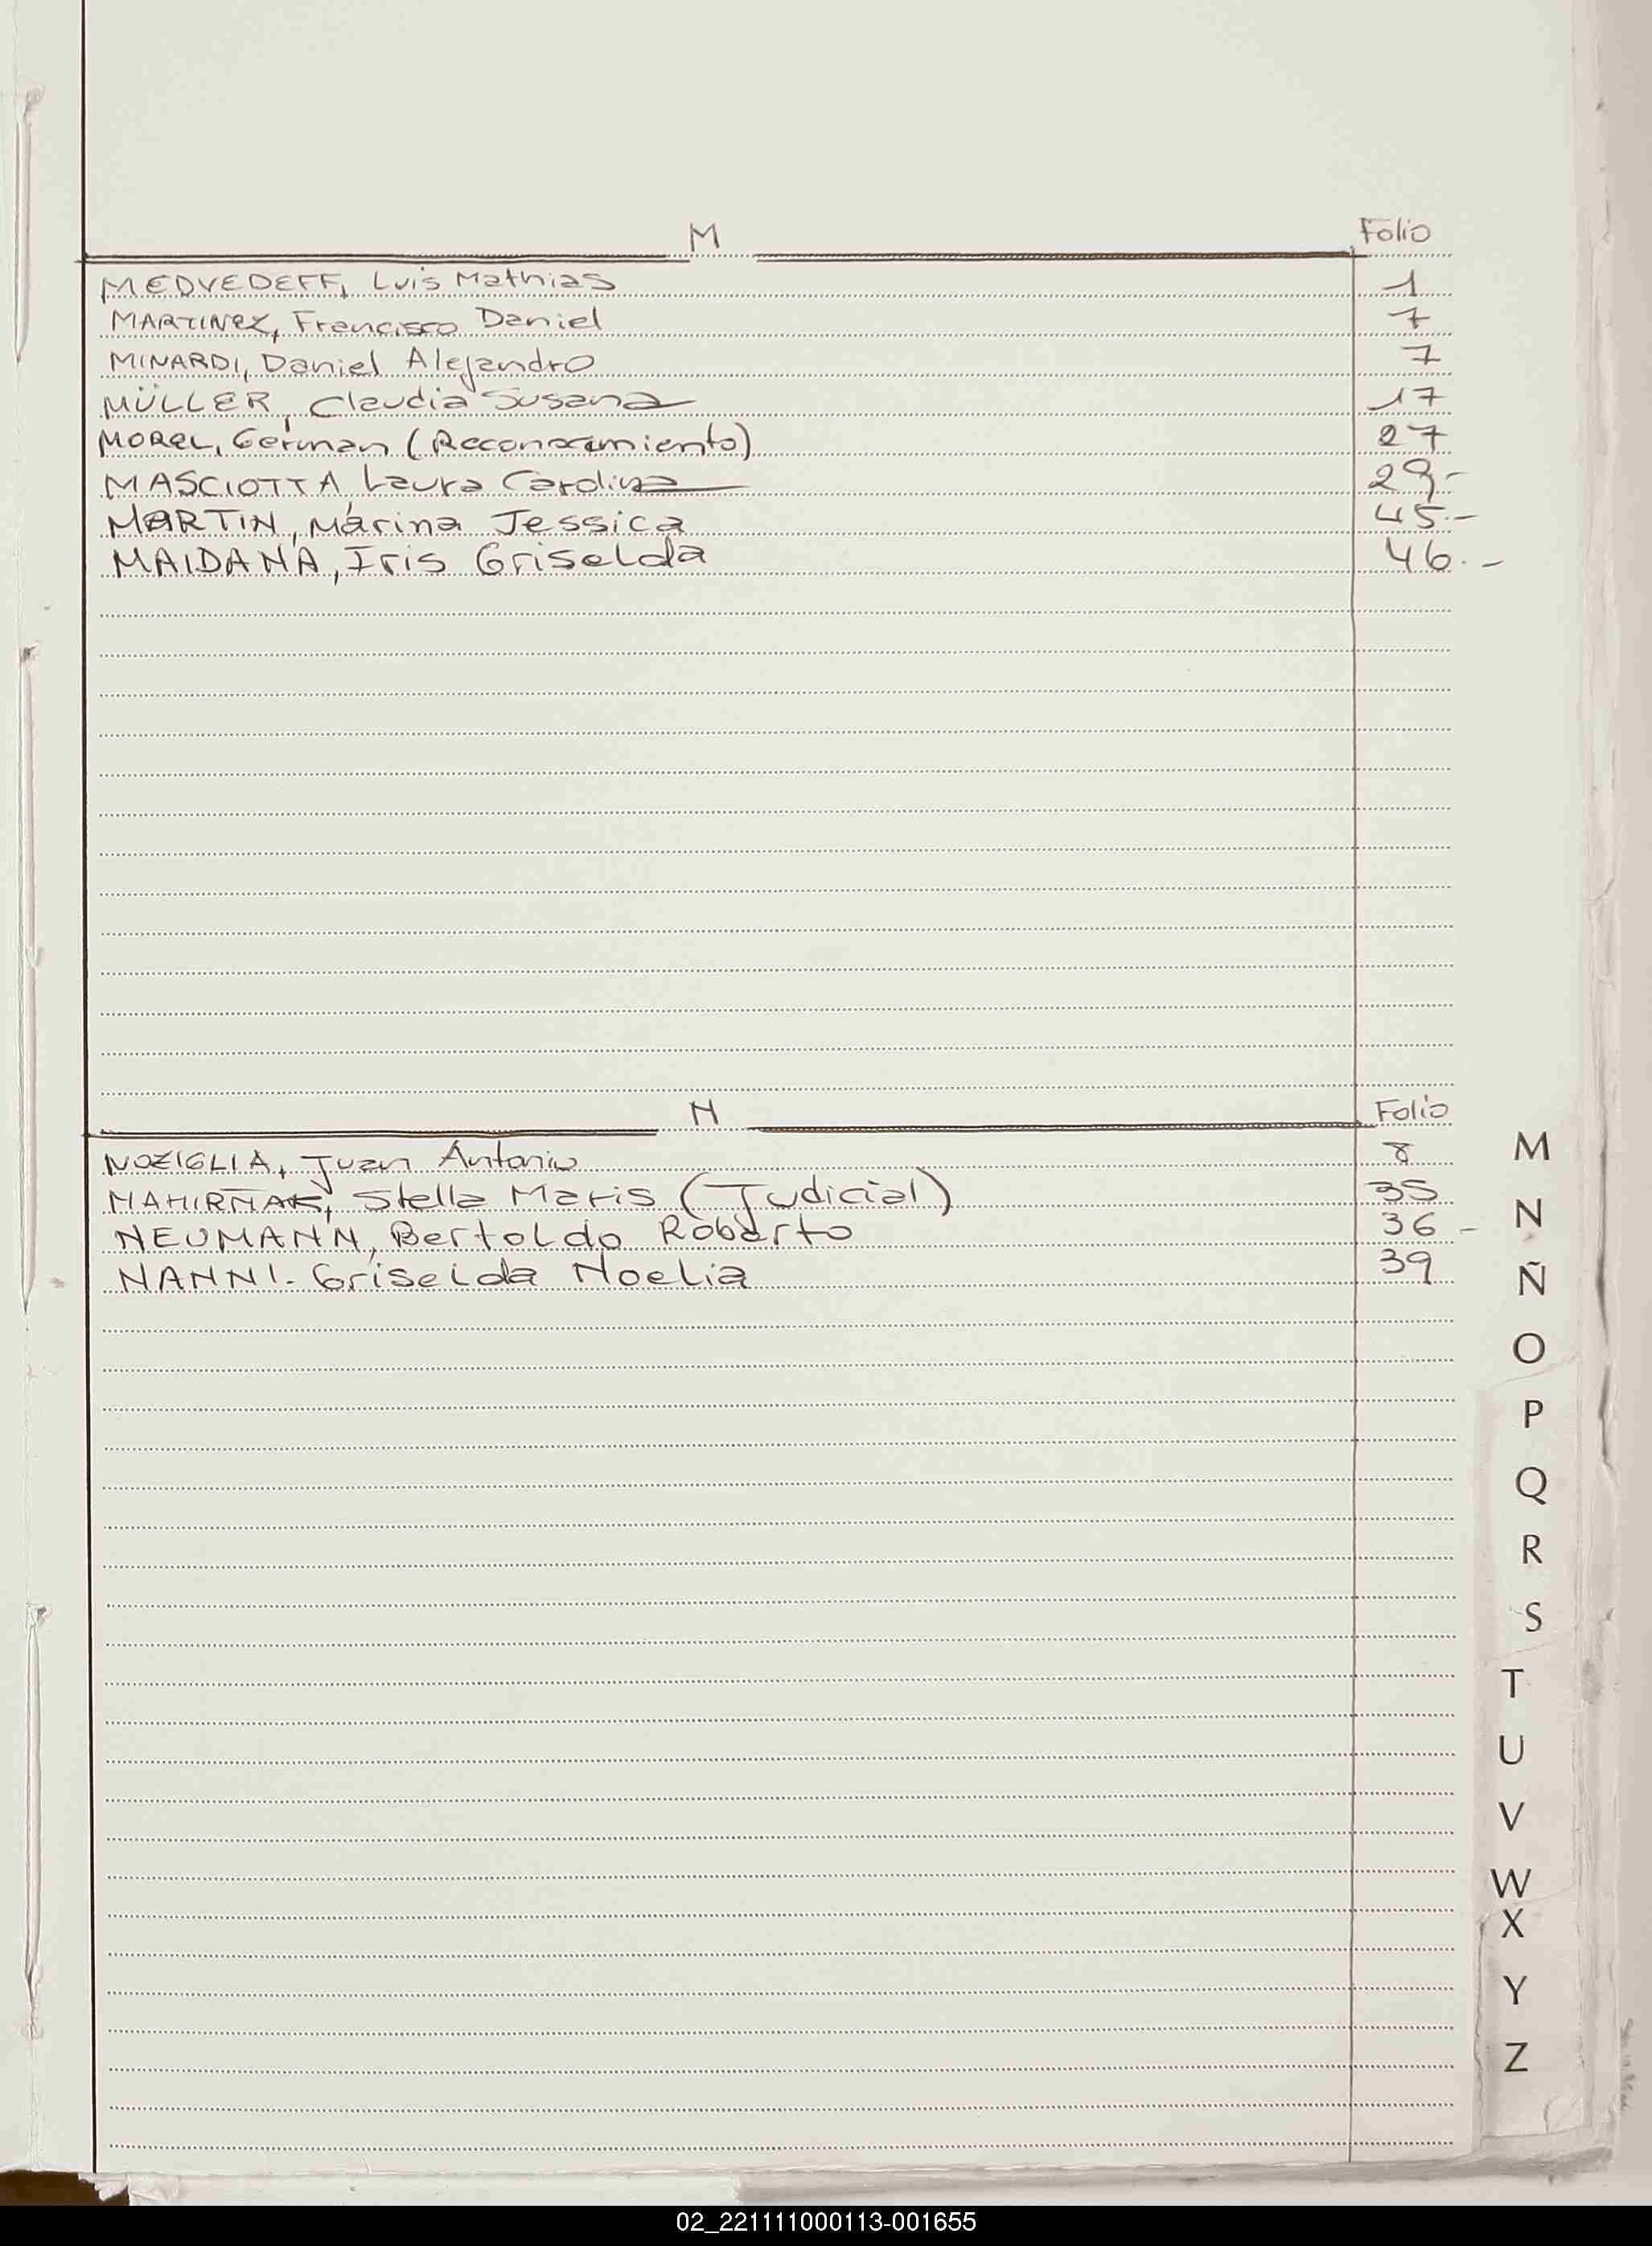 M Folio
MEDVEDEFF, Luis Mathias 1
MARTINEZ, Francisco Daniel 7
MINARDI, Daniel Alejandro 7
MÜLLER, Claudia Susana 17
MOREL, German (Reconocimiento) 27
MASCIOTTA Laura Carolina 29-
MARTIN, Marina Jessica 45.-
MAIDANA, Iris Griselda 46.-
N Folio
NOZIGLIA, Juan Antonio 8
Stella Maris (Judicial) 35
NEUMANN, Bertoldo Roberto 36-
NANNI- Griselda Noelia 39
M
N
Ñ
O
P
Q
R
S
T
U
V
W
X
Y
Z
02_221111000113-001655